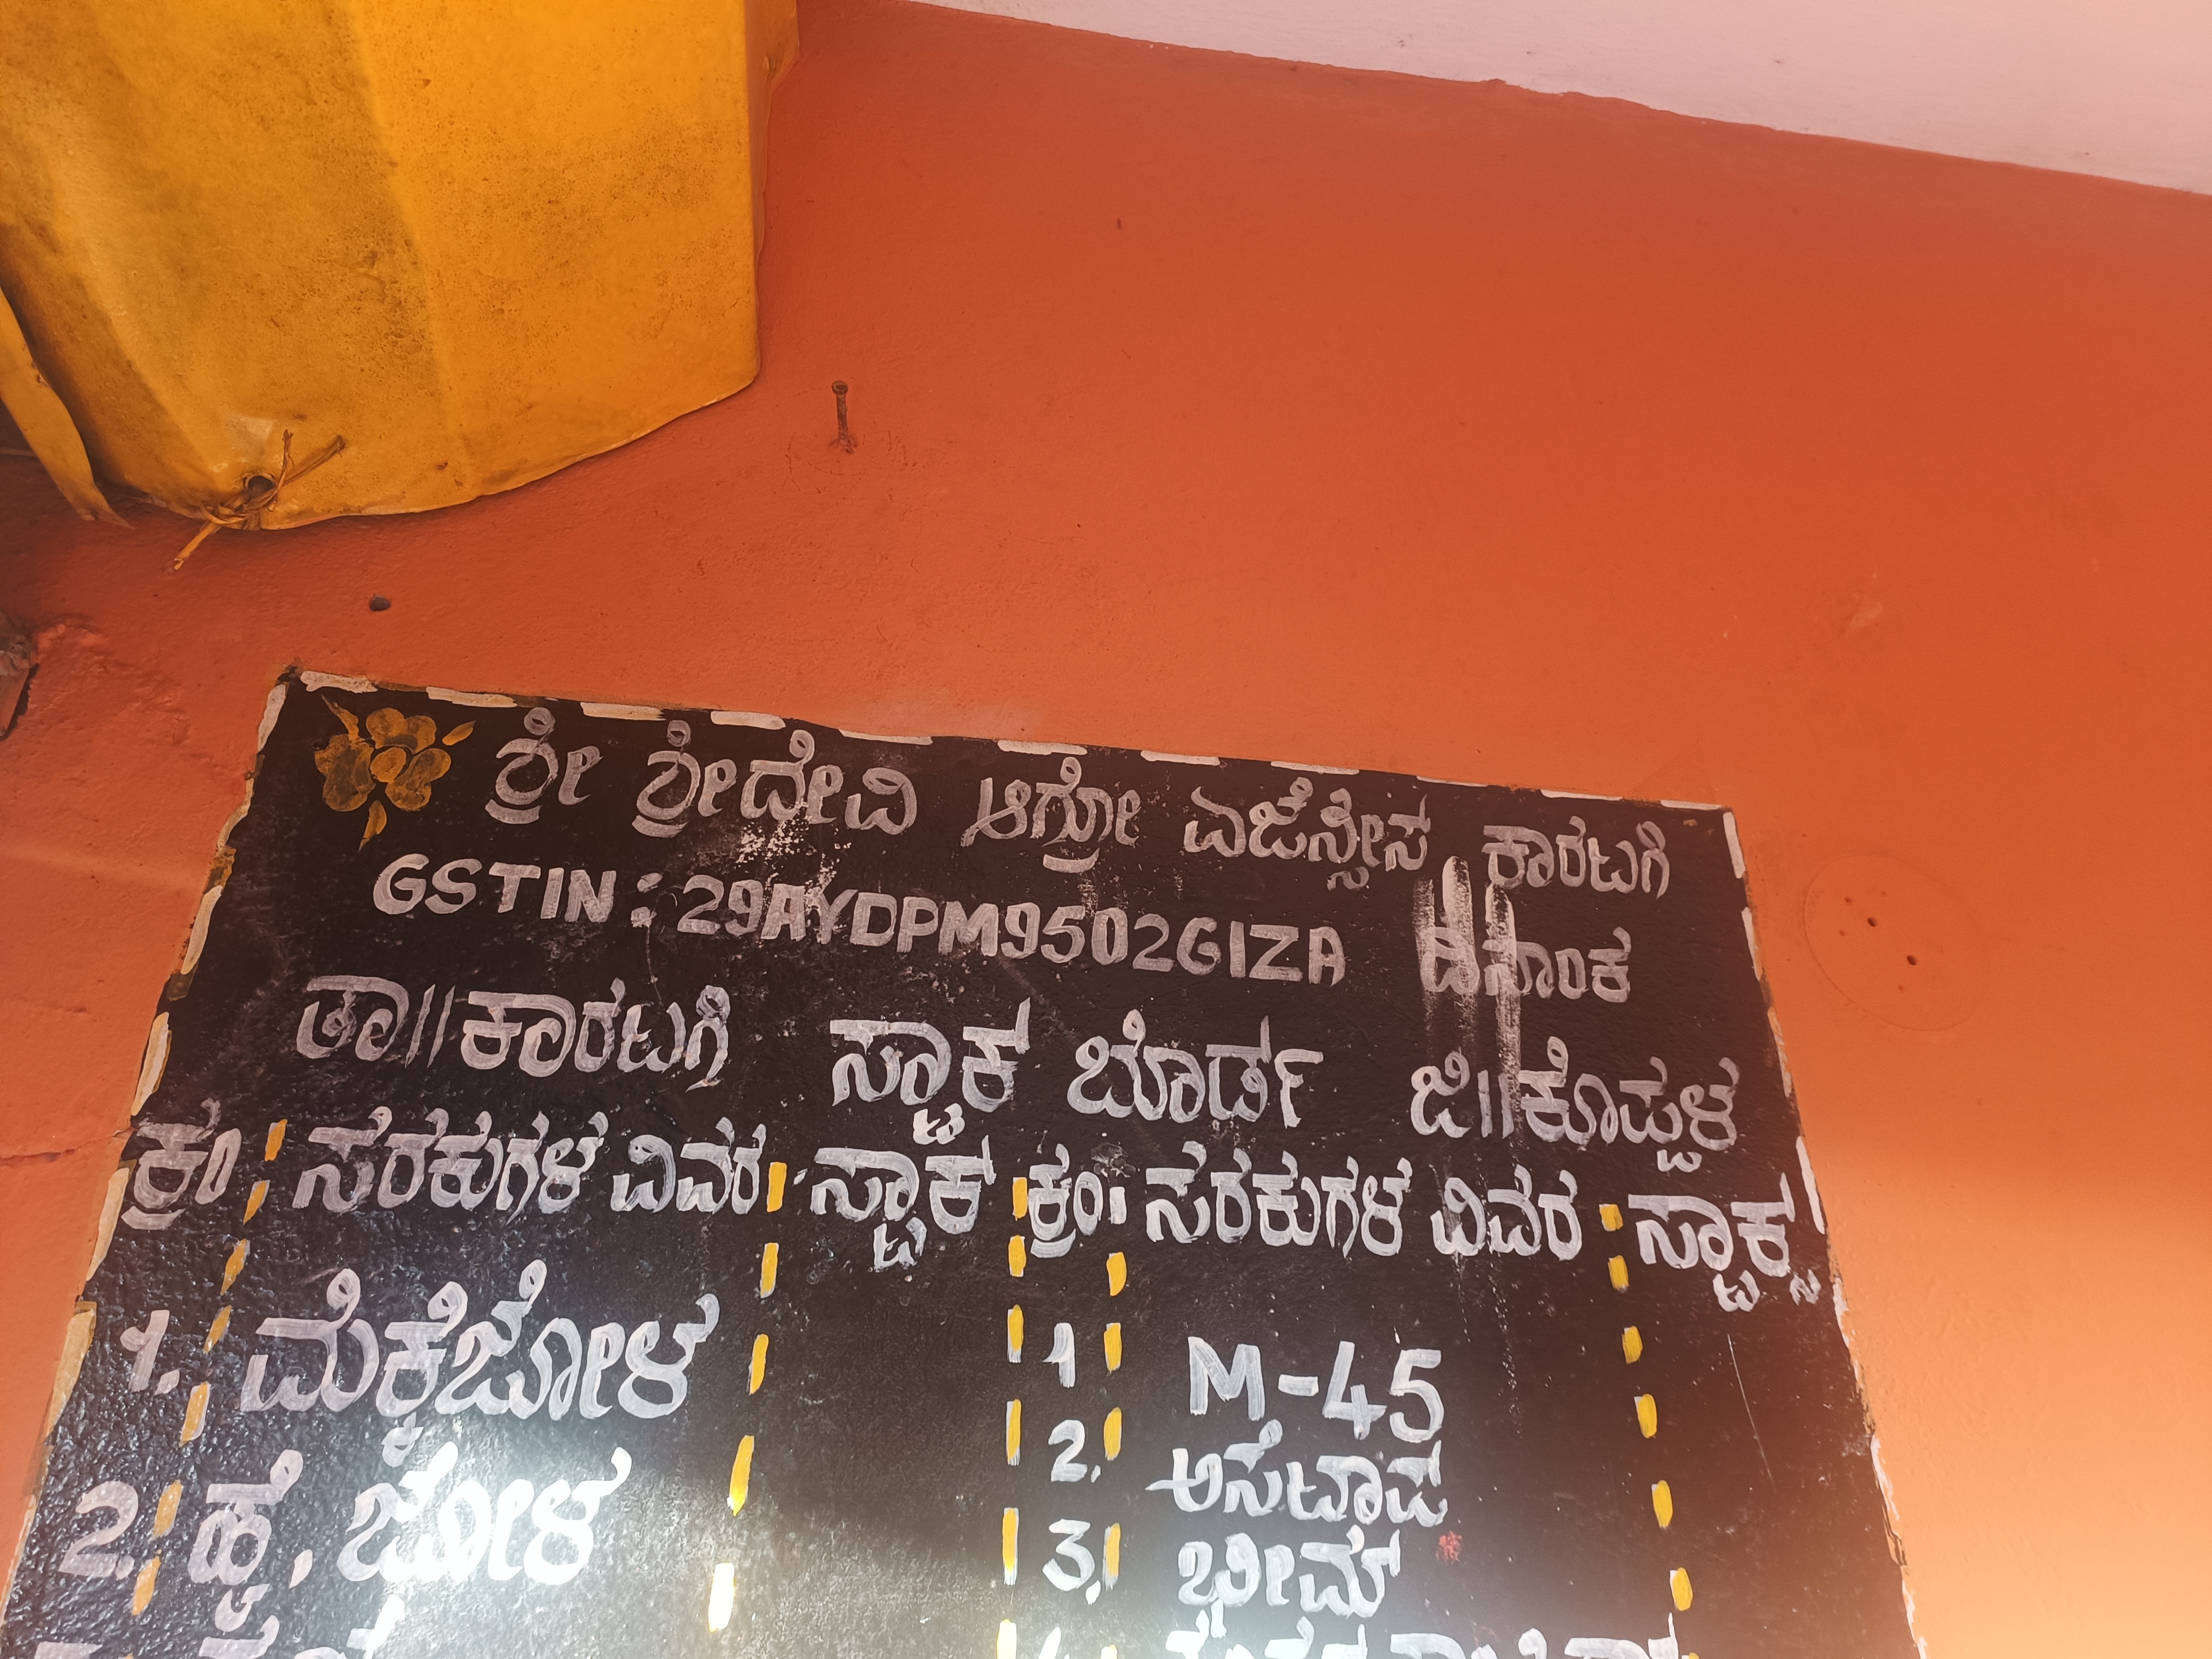 ಶ್ರೀ ಶ್ರೀದೇವಿ ಆಗ್ರೋ ಏಜೆನ್ಸೀಸ ಕಾರಟಗಿ
GSTIN : 29AYDPM9502G1ZA ದಿನಾಂಕ
ತಾ||ಕಾರಟಗಿ ಸ್ಟಾಕ ಬೋರ್ಡ ಜಿ||ಕೊಪ್ಪಳ
ಕ್ರಂ ಸೆರಕುಗಳ ವಿವರ ಸ್ಟಾಕ್ ಕ್ರಂ ಸೆರಕುಗಳ ವಿವರ ಸ್ಟಾಕ್ಸ
1. ಮೆಕ್ಕೆಜೋಳ 1 M-45
2. ಹೈ. ಜೋಳ 2. ಅಸೆಟಾಪ
3. ಭೀಮ್